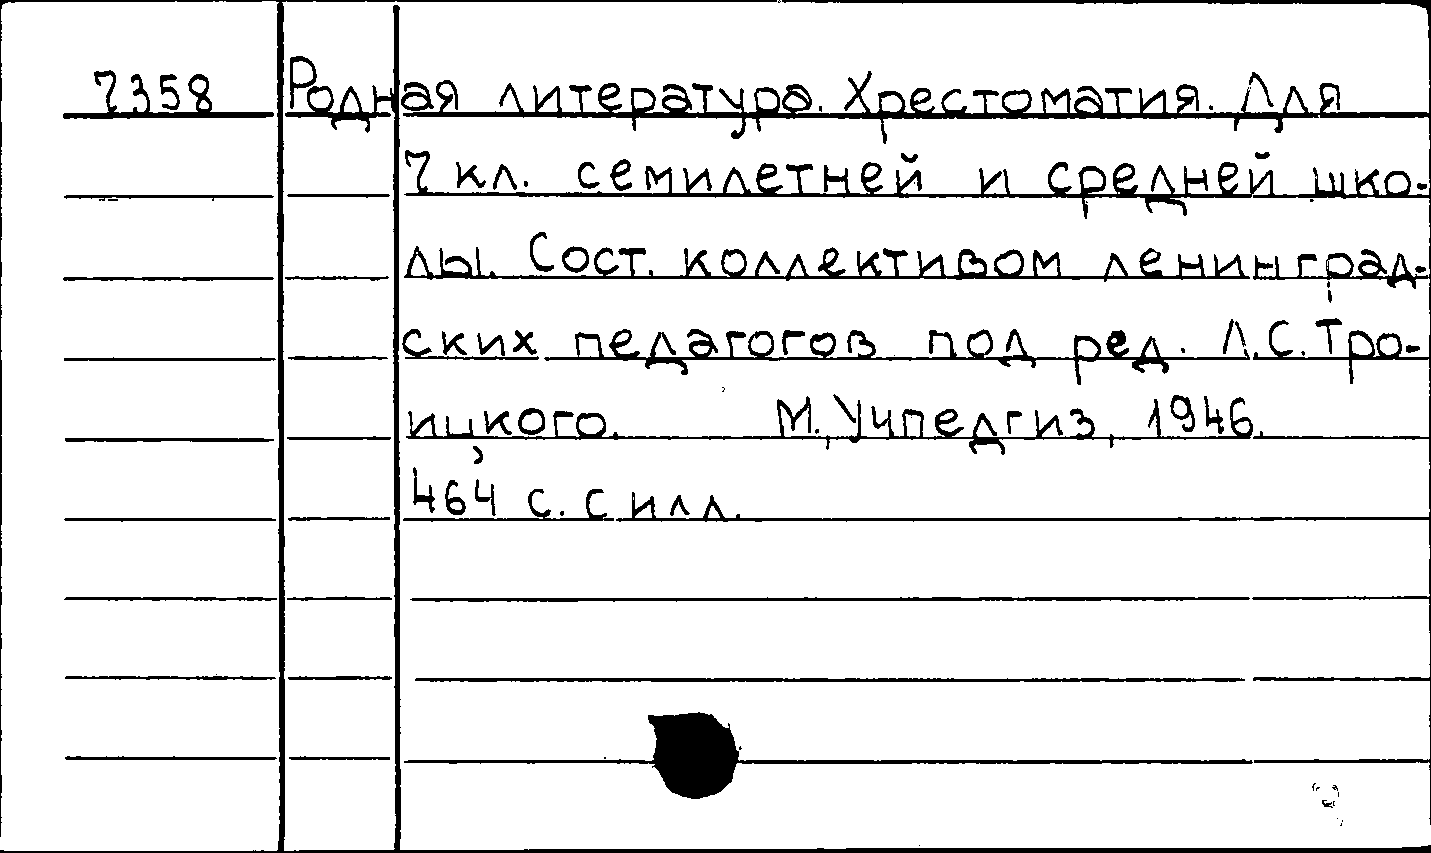 7358 Родная литература. Хрестоматия. Для
7 кл. семилетней и средней шко-
лы. Сост. коллективом ленинград-
ских педагогов под ред. Л.С. Тро-
ицкого. М., Учпедгиз, 1946.
464 с. с илл.